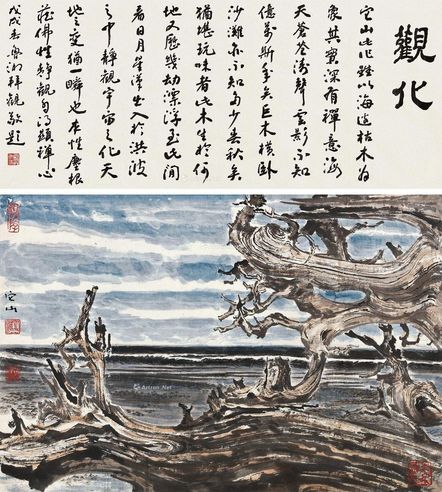 觀化
空山此作雖以海邊枯木為
象其實深有禪意海
天蒼蒼濤聲雲影不知
億萬斯年矣巨木橫卧
沙灘亦不知多少春秋矣
猶堪玩味者此木生於何
地又歷幾劫漂浮至此间
看日月星漢出入於洪波
之中靜觀宇宙之化天
地之變猶一瞬也本性塵根
佛性靜觀自得顯禪心
戊戌春拜觀敬題
空山
Artron.Net